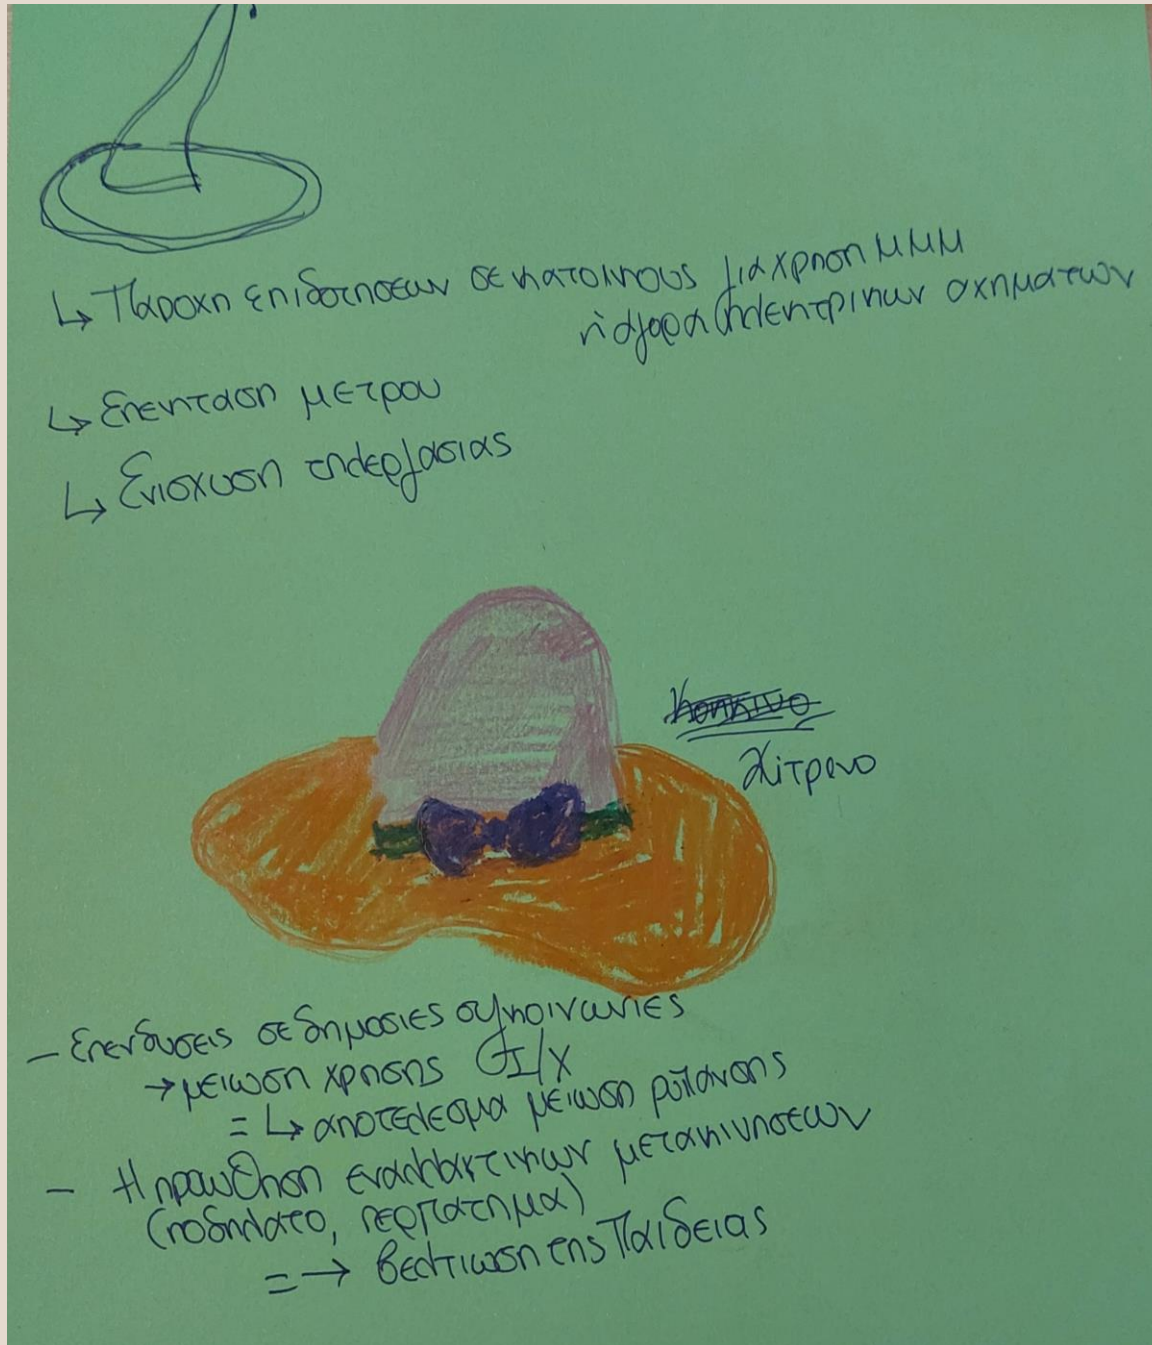 ↳ Παροχη επιδοτησεων σε κατοικους για χρηση ΜΜΜ
ή αγορα ηλεκτρικων οχηματων
↳ Επεκταση μετρου
↳ Ενισχυση τηλεργασιας
Κοκκινο
Κίτρινο
– Επενδυσεις σε δημοσιες συγκοινωνιες
→ μειωση χρησης Ι/Χ
= ↳ αποτελεσμα μειωση ρύπανσης
– Η προωθηση εναλλακτικων μετακινησεων
(ποδηλατο, περπατημα)
= → βελτιωση της Παιδειας